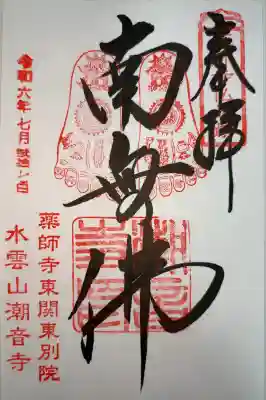 奉拝
南無佛
令和六年七月
薬師寺東關東別院
水雲山潮音寺